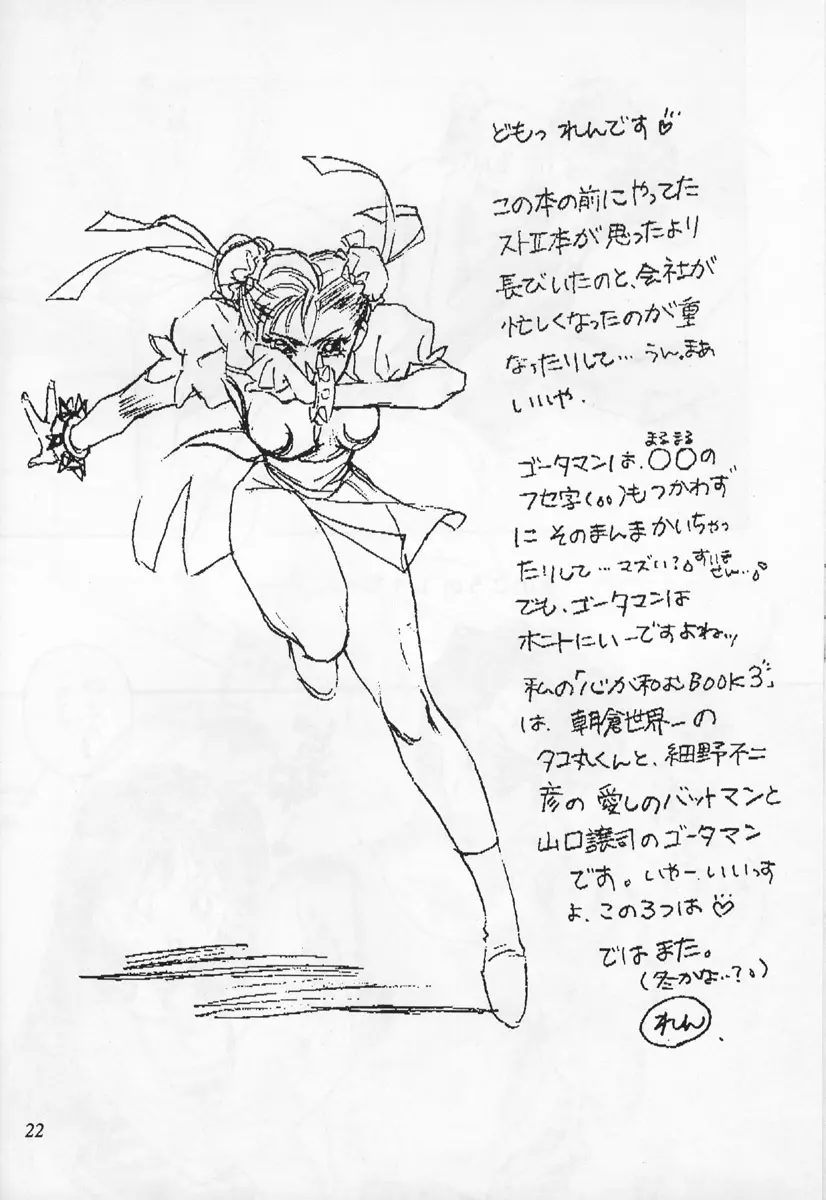 どもっ れんです♡
この本の前にやってた
ストⅡ本が思ったより
長びいたのと、会社が
忙しくなったのが重
なったりして… うん。まぁ
いいや.
まるまる
ゴータマンは、○○の
フセ字(。。)もつかわず
に そのまんまかいちゃっ
たりして… マズい?。すいま
せん…。
でも、ゴータマンは
ホントにいーですよねッ
私の「心が和むBOOK3」
は、朝倉世界一の
タコ丸くんと、細野不二
彦の 愛しのバットマンと
山口譲司のゴータマン
です。いやー、いいっす
よ、この3つは♡
ではまた。
(冬かな…?。)
れん
22